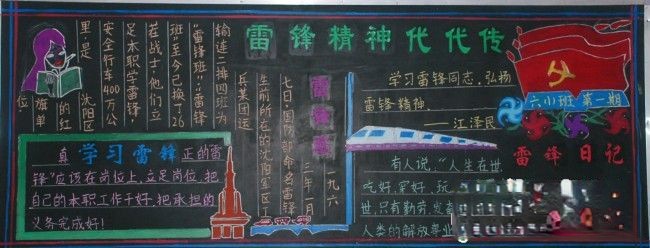 雷锋精神代代传
一九六
三年一月
七日,国防部命名雷锋
生前所在的沈阳军区工
兵某团运
输连二排四班为
“雷锋班”;“雷锋
班”至今已换了26
茬战士,他们立
足本职学雷锋,
安全行车400万公
里,是沈阳区
的红
旗单
位
学习雷锋
真 正的雷
锋”应该在岗位上,立足岗位,把
自己的本职工作干好,把承担的
义务完成好!
学习雷锋同志,弘扬
雷锋精神
——江泽民
六小班 第一期
雷锋日记
有人说,“人生在世
吃好,穿好,玩
世,只有勤劳,发奋
人类的解放事业